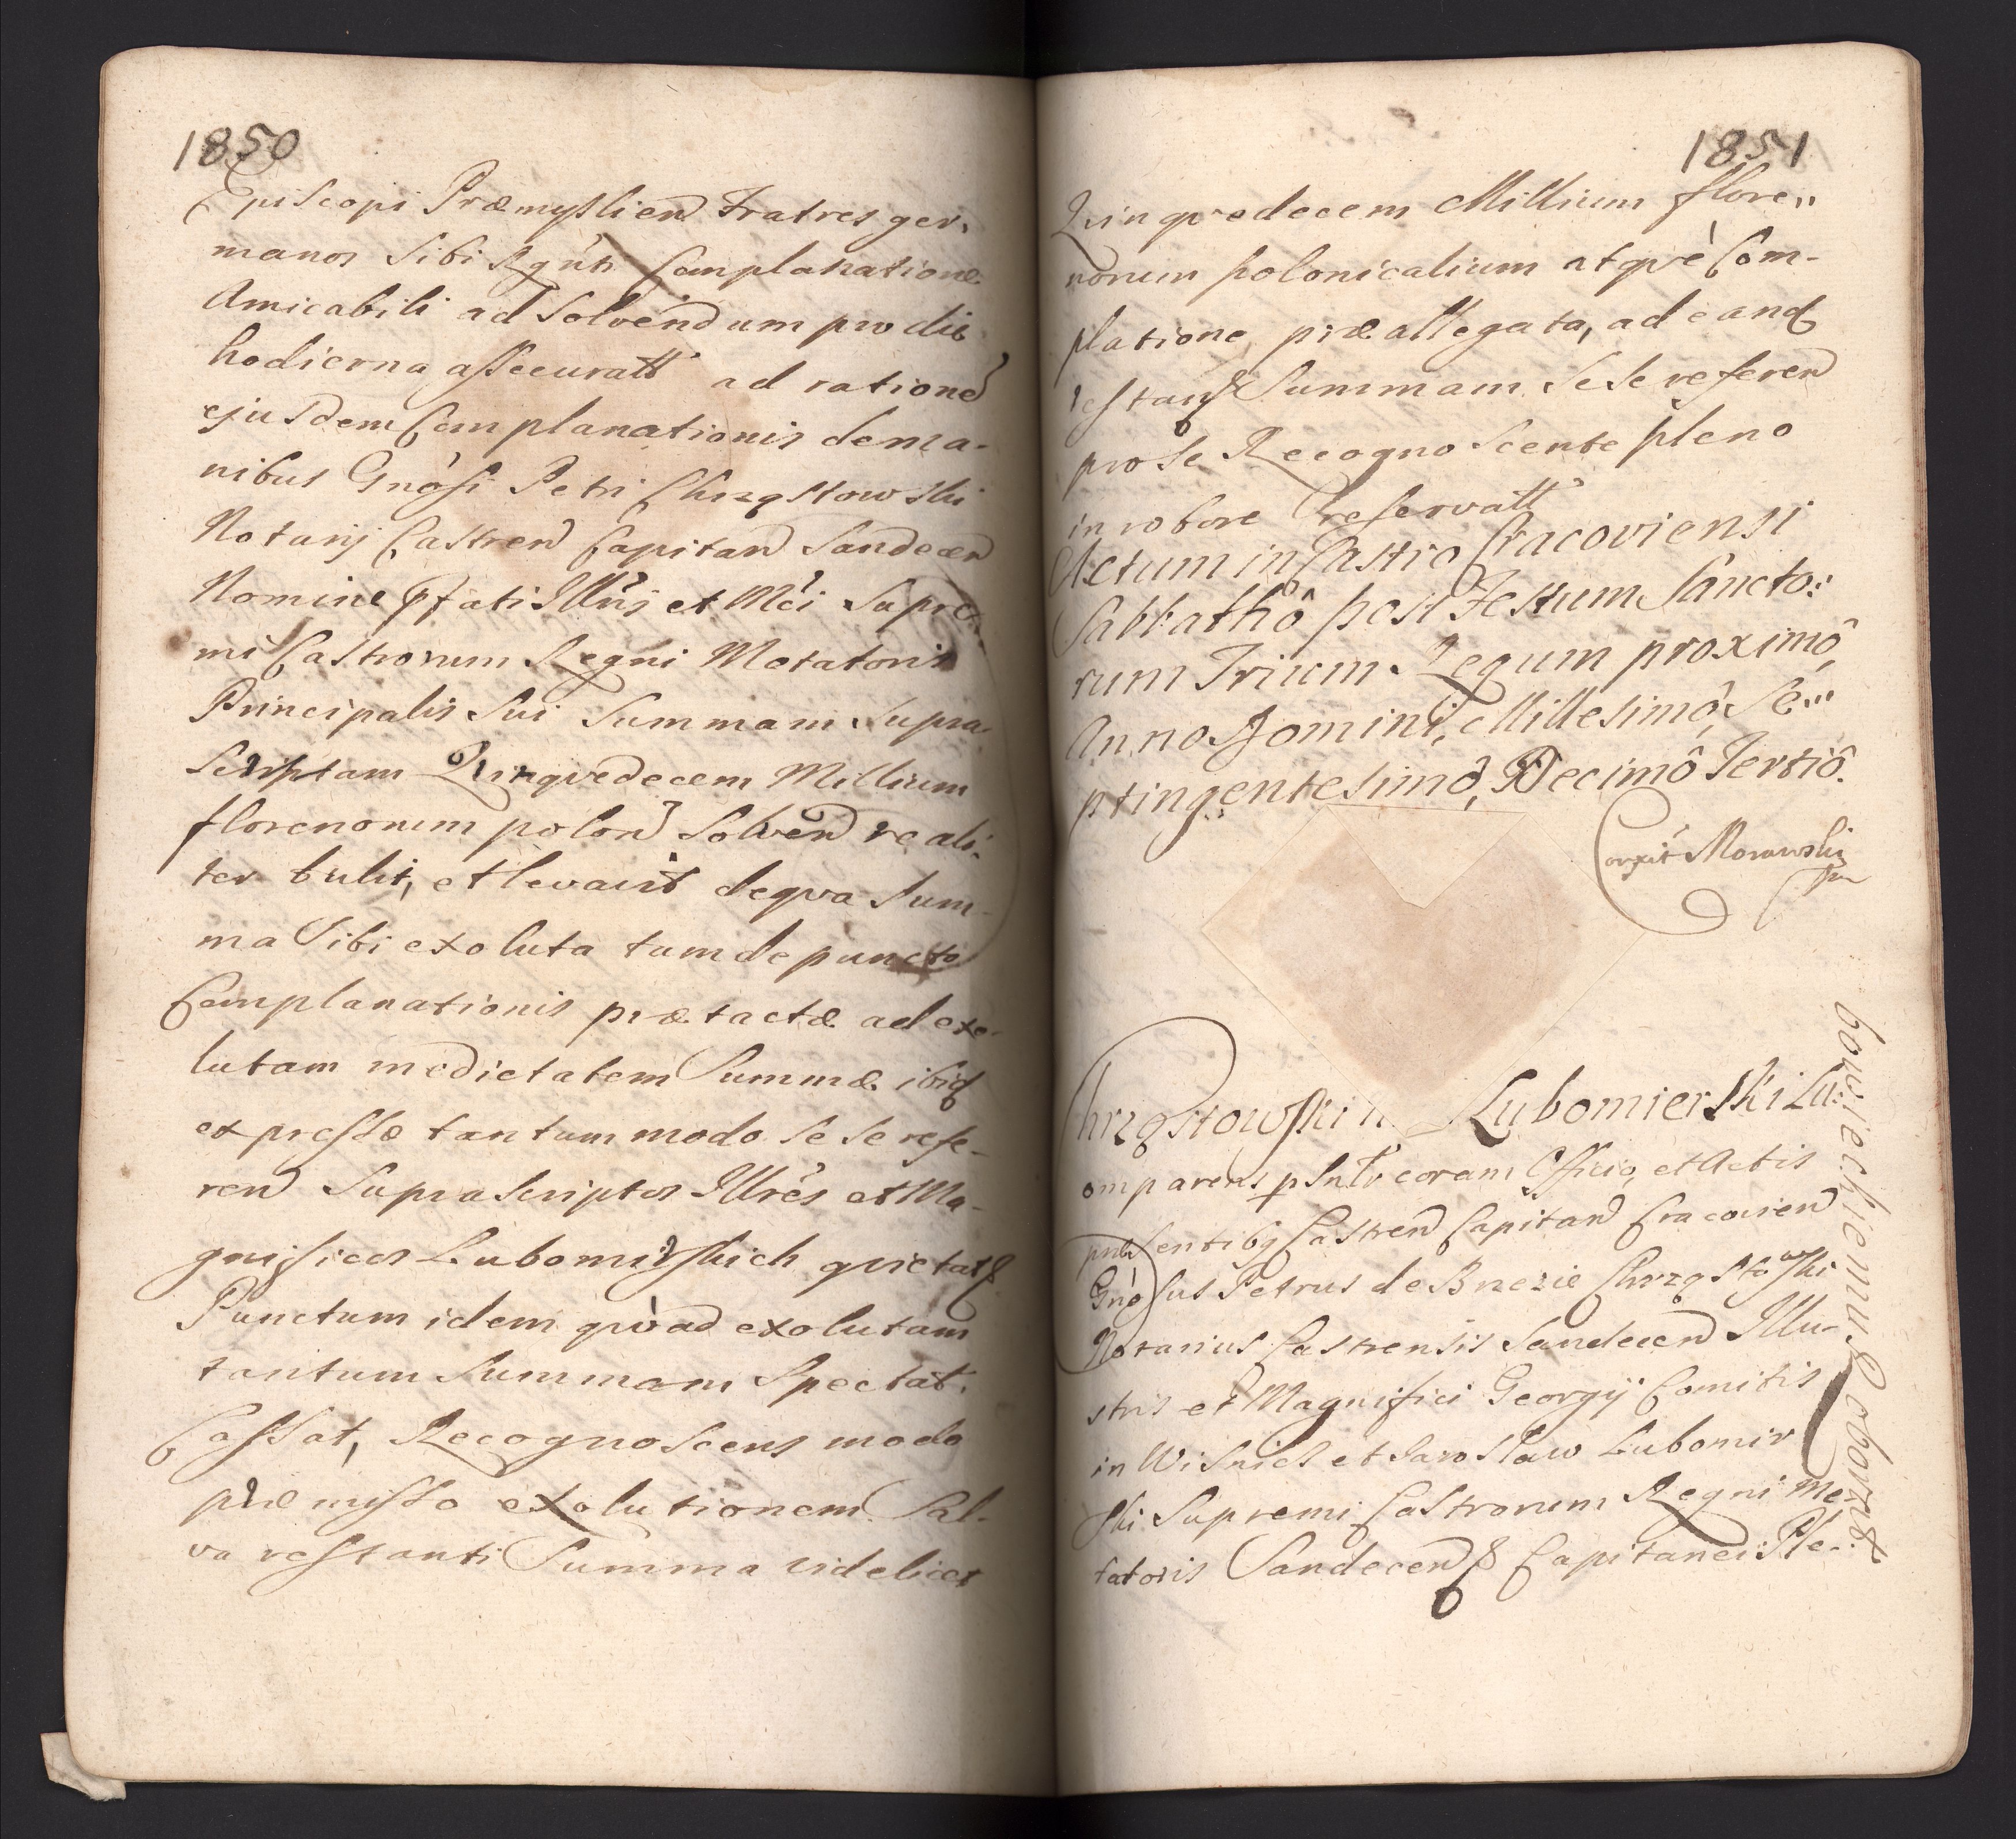 1850
Episcopi Præmyslien Fratres ger,
manos Sibi Rgńti Complanatione
Amicabili ad Solvendum pro die
hodierna assecuratt ad rationē
ejusdem Complanationis de ma-
nibus Gnosi Petri Chrząstowski
Notarij Castren Capitan Sandecen
Nomine Pfati Illris et Mci Supre-
mi Castrorum Regni Motatoris
Principalis Sui Summam Supra
Scriptam Quinqvedecem Millium
florenorum polon Solven reali-
ter tulit, et levavit de qva Sum-
ma Sibi exoluta tum de puncto
Complanationis prætactæ ad exo-
lutam medietatem Summæ ibid
expressæ tantummodo Se Se refe-
ren Supra Scriptos Illres et Ma-
gnificos Lubomirskich qvietat &
Punctum idem qvoad exolutam
tantum Summam Spectat.
Cassat, Recognoscens modo
præmisso exolutionem Sal-
va restanti Summa videlicet
1851
Quinqvedecem Millium flore,,
norum polonicalium atqve Com-
platione præallegata, ad eand
restan Summam Se Se referen
pro Se Recognoscente pleno
in robore reservatt
Actum in Castro Cracoviensi
Sabbathô post Festum Sancto:
rum Trium Regum proximô,
Anno Domini, Millesimô, Se...
ptingentesimô, Decimô Tertiô.
Corrxit Morawski
mp
Chrząstowski Lubomierski Lu:
bowieckiemu Roborat
Comparens pSntr coram Officio, et Actis
præsentibg Castren Capitan Cracovien
Gnosus Petrus de Brzezie Chrząstowski
Notarius Castrensis Sandecen Illu-
stris et Magnifici Georgij Comitis
in Wisnicz et Jarosław Lubomir
ski Supremi Castrorum Regni Me-
tatoris Sandecen & Capitanei Ple..